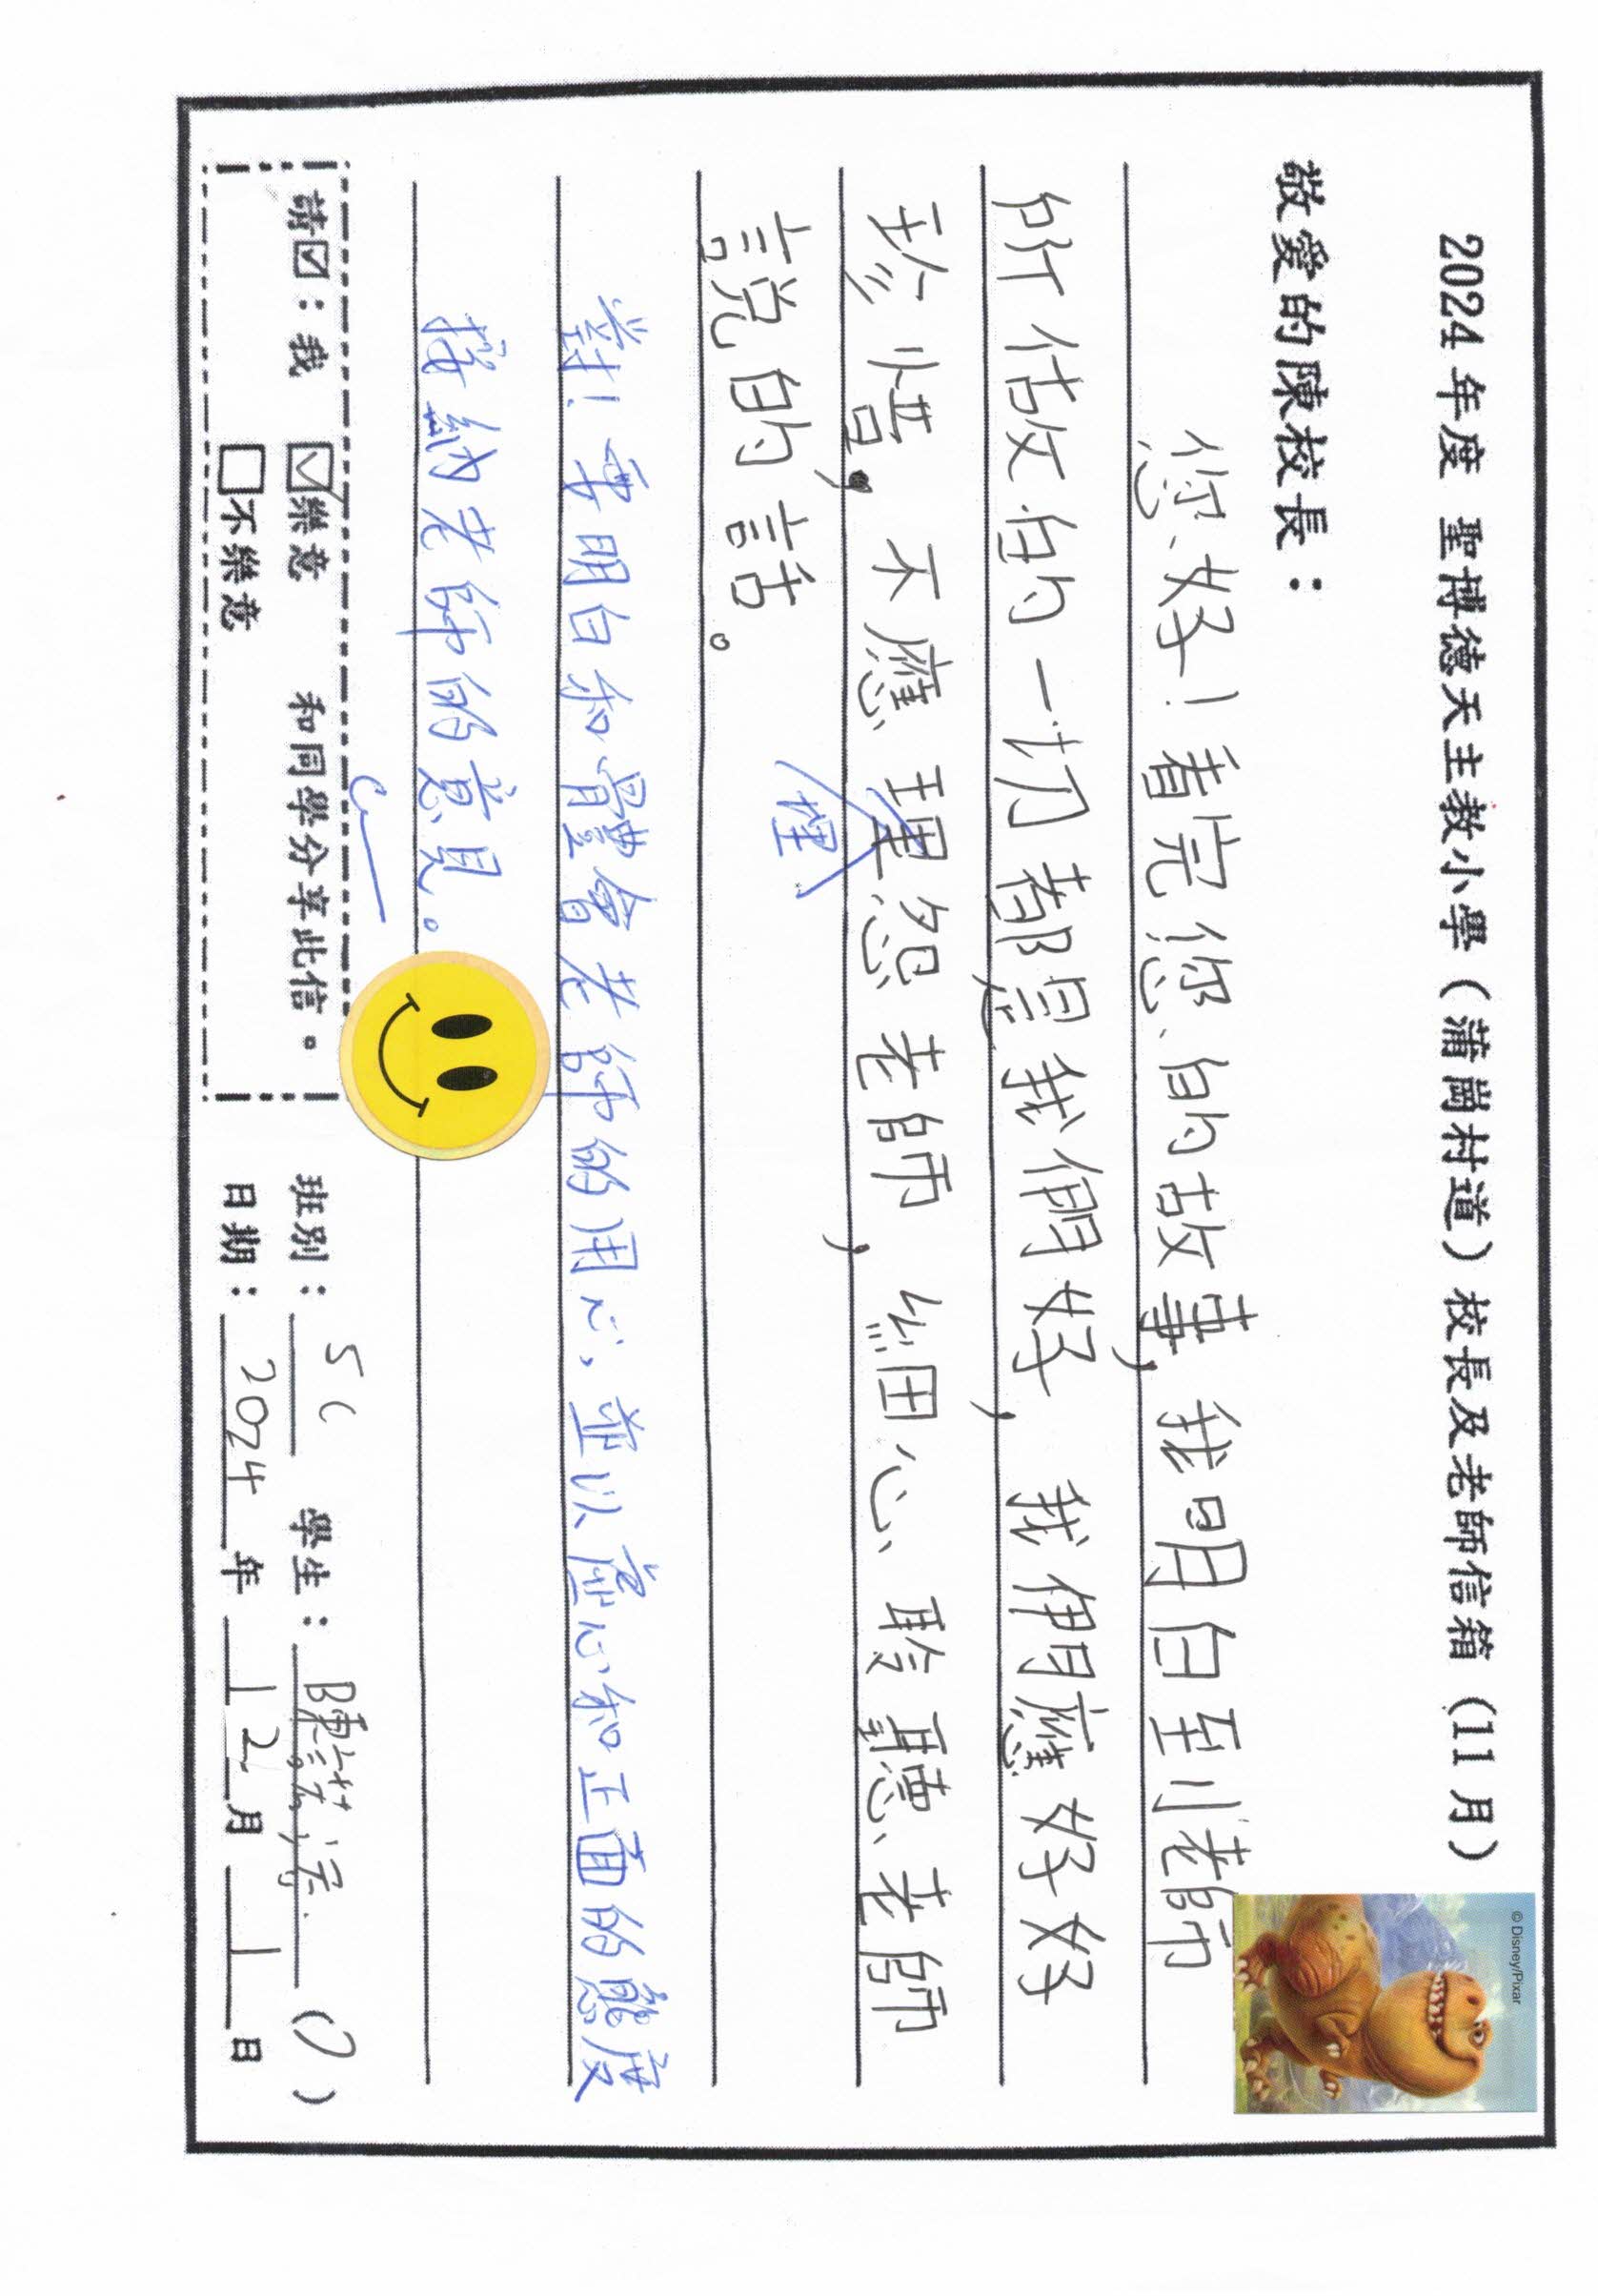 2024年度 聖博德天主教小學（蒲崗村道）校長及老師信箱（11月）
© Disney/Pixar
敬愛的陳校長：
您好！看完您的故事，我明白到老師
所做的一切都是我們好，我們應好好
珍惜，不應理怨老師，細心聆聽老師
埋
說的話。
對！要明白和體會老師的用心，並以虛心和正面的態度
接納老師的意見。
請☑：我 ☑樂意 和同學分享此信。
□不樂意
班別：5C 學生：陳 ( )
日期：2024年12月1日